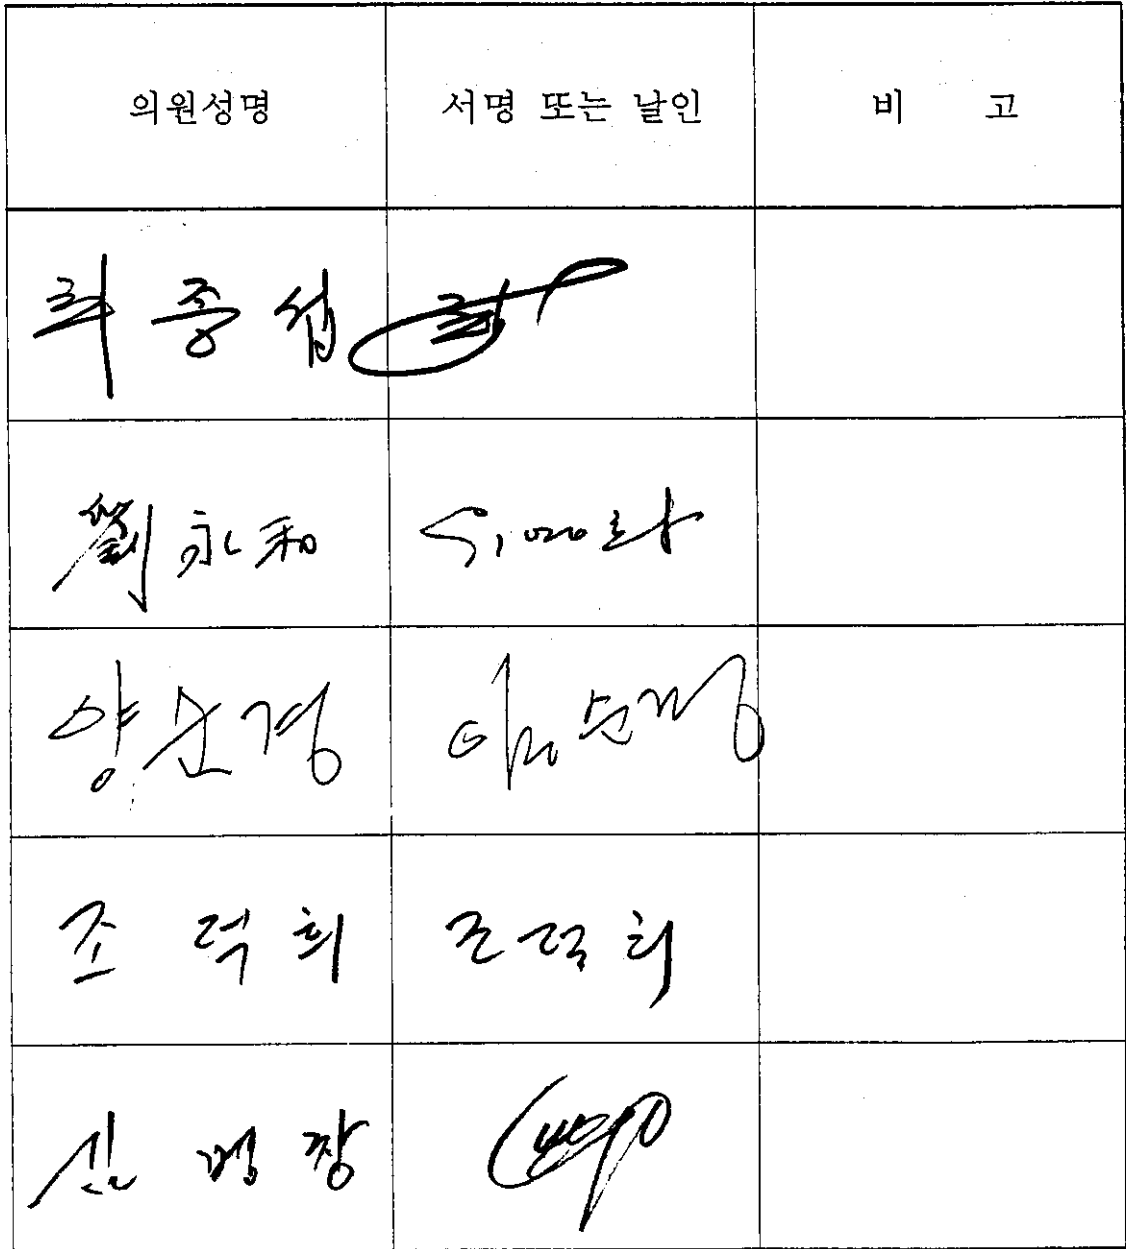 의원성명 서명 또는 날인 비 고
최종섭
劉永和 유영화
양순경 양순경
조덕희 조덕희
신명창